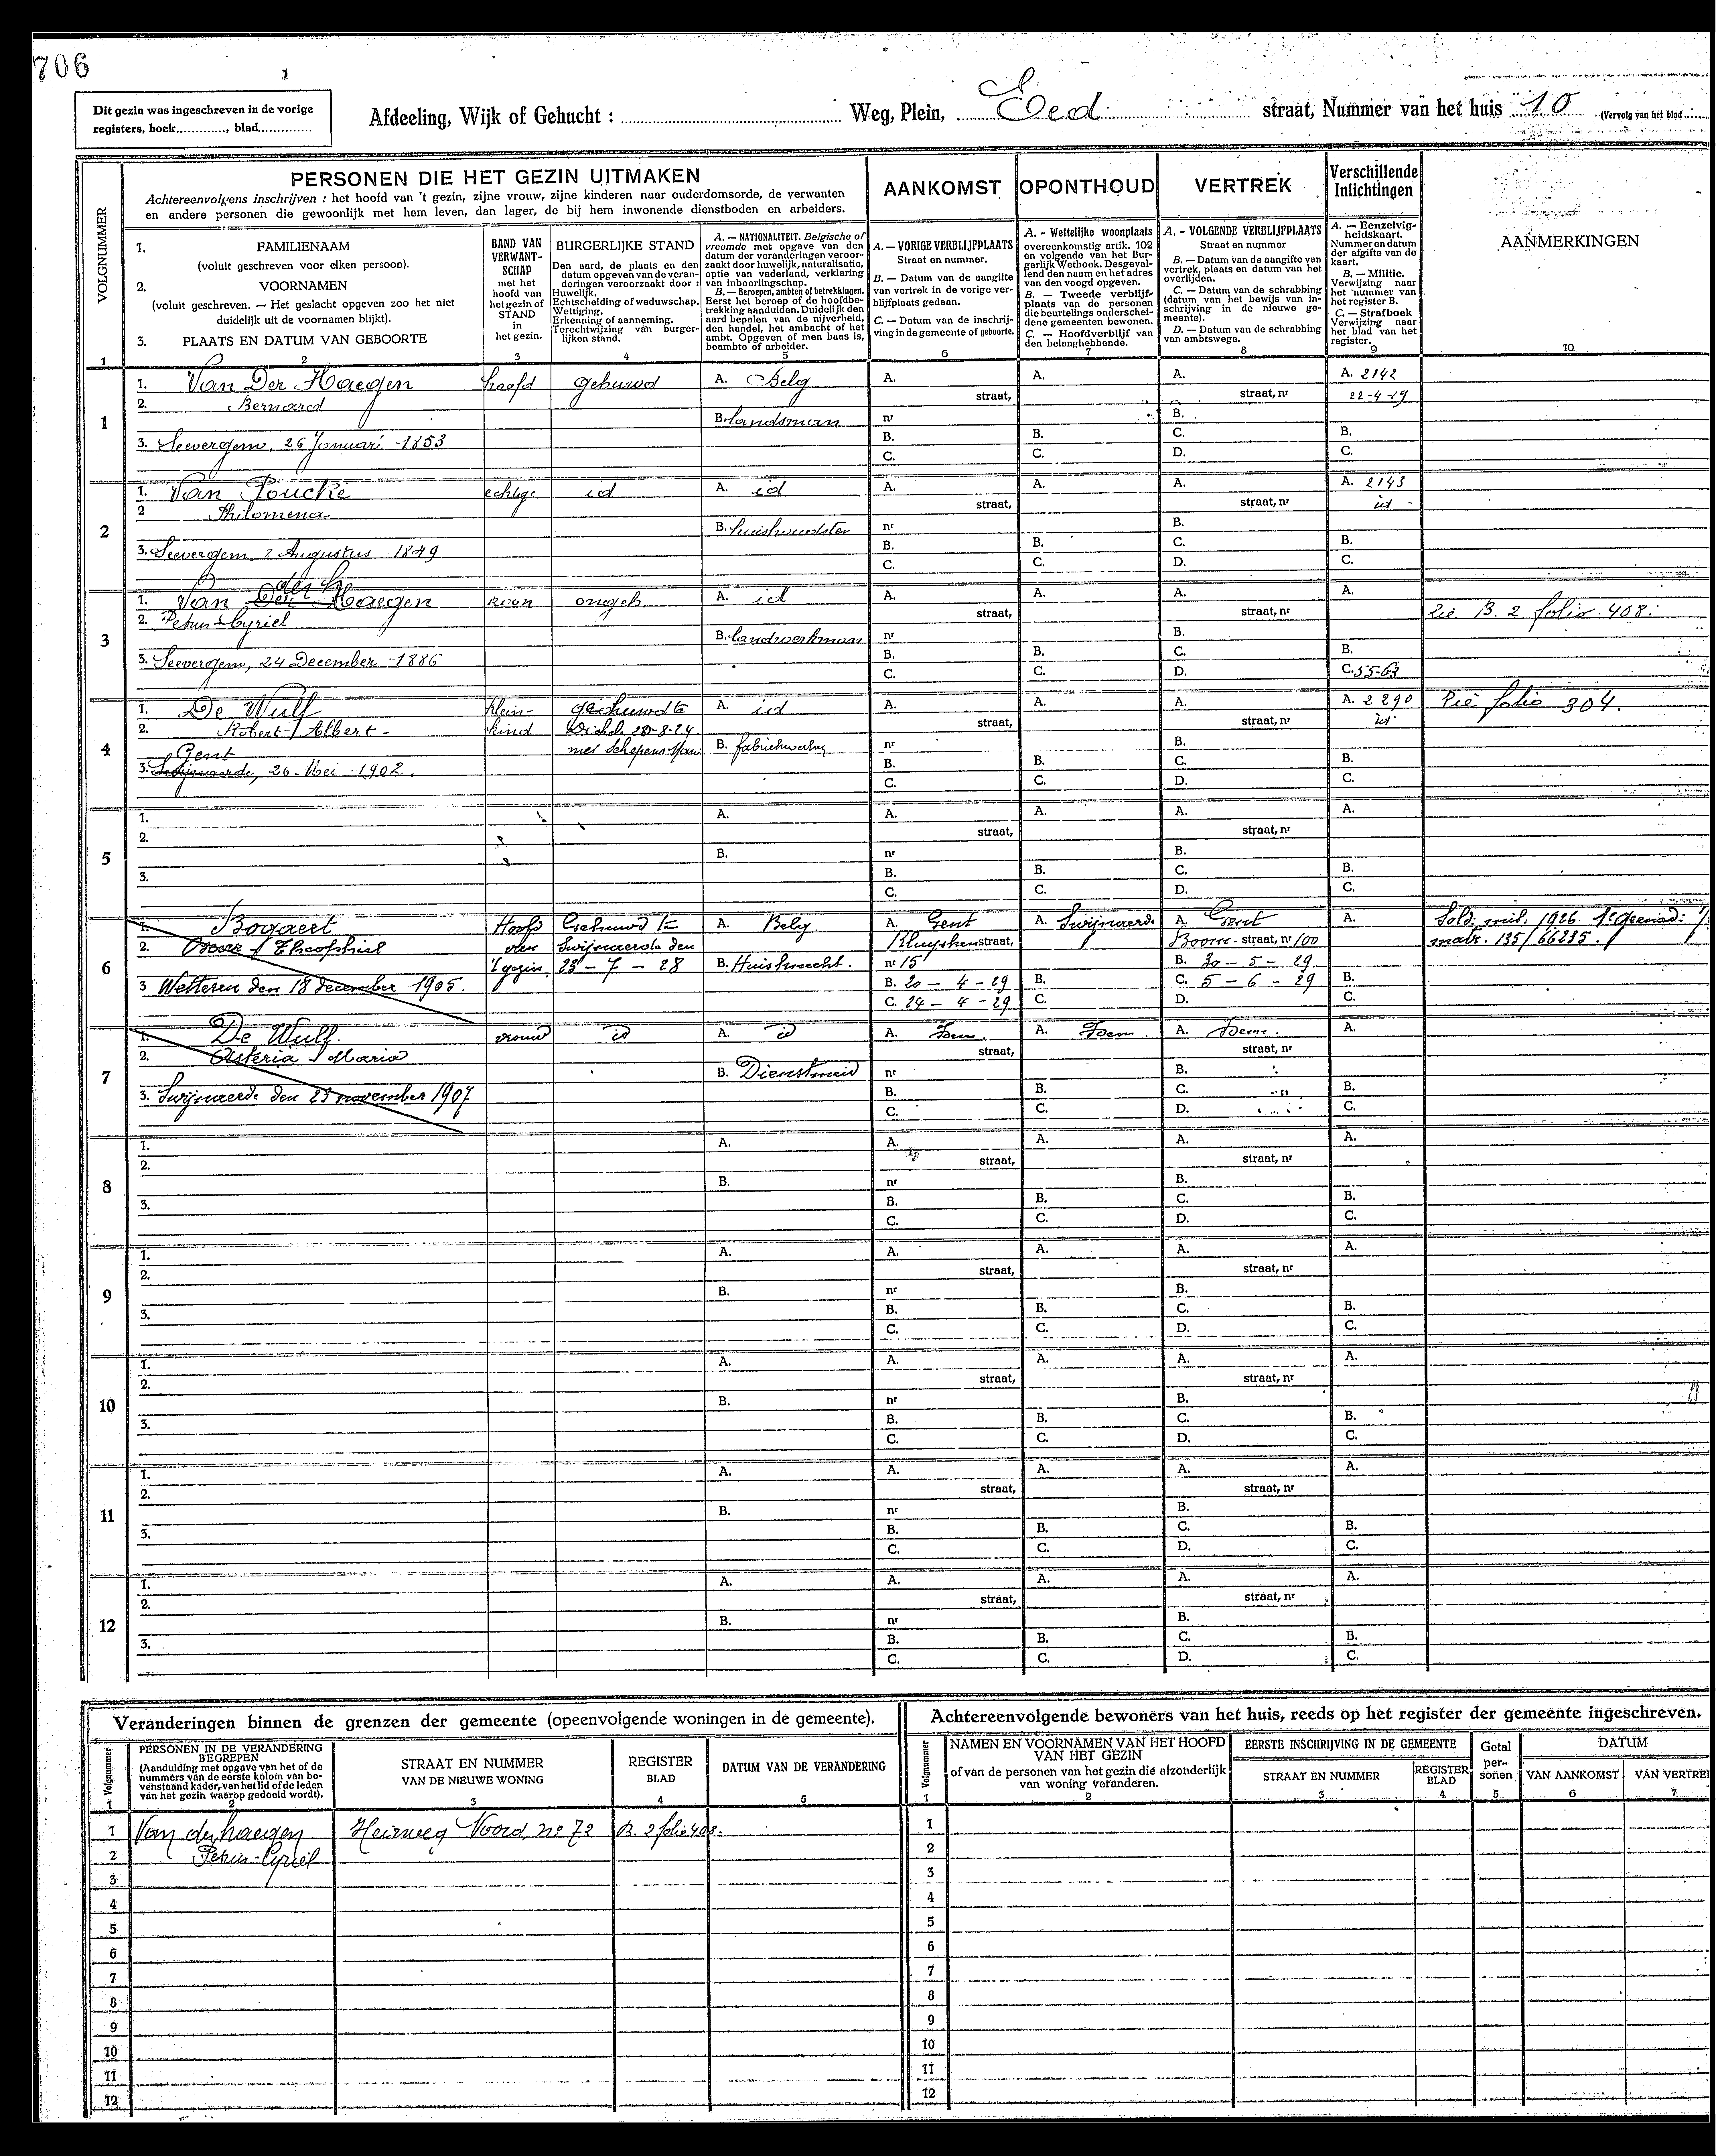 706
Dit gezin was ingeschreven in de vorige
registers, boek............, blad..............
Afdeeling, Wijk of Gehucht : .......... Weg, Plein, Eed straat, Nummer van het huis 10 (Vervolg van het blad ......
VOLGNUMMER
PERSONEN DIE HET GEZIN UITMAKEN
Achtereenvolgens inschrijven : het hoofd van 't gezin, zijne vrouw, zijne kinderen naar ouderdomsorde, de verwanten
en andere personen die gewoonlijk met hem leven, dan lager, de bij hem inwonende dienstboden en arbeiders.
AANKOMST
OPONTHOUD
VERTREK
Verschillende
Inlichtingen
AANMERKINGEN
1. FAMILIENAAM
(voluit geschreven voor elken persoon).
2. VOORNAMEN
(voluit geschreven. — Het geslacht opgeven zoo het niet
duidelijk uit de voornamen blijkt).
3. PLAATS EN DATUM VAN GEBOORTE
BAND VAN
VERWANT-
SCHAP
met het
hoofd van
het gezin of
STAND
in
het gezin.
BURGERLIJKE STAND
Den aard, de plaats en den
datum opgeven van de veran-
deringen veroorzaakt door :
Huwelijk.
Echtscheiding of weduwschap.
Wettiging.
Erkenning of aanneming.
Terechtwijzing van burger-
lijken stand.
A. — NATIONALITEIT. Belgische of
vreemde met opgave van den
datum der veranderingen veroor-
zaakt door huwelijk, naturalisatie,
optie van vaderland, verklaring
van inboorlingschap.
B. — Beroepen, ambten of betrekkingen.
Eerst het beroep of de hoofdbe-
trekking aanduiden. Duidelijk den
aard bepalen van de nijverheid,
den handel, het ambacht of het
ambt. Opgeven of men baas is,
beambte of arbeider.
A. — VORIGE VERBLIJFPLAATS
Straat en nummer.
B. — Datum van de aangifte
van vertrek in de vorige ver-
blijfplaats gedaan.
C. — Datum van de inschrij-
ving in de gemeente of geboorte.
A. - Wettelijke woonplaats
overeenkomstig artik. 102
en volgende van het Bur-
gerlijk Wetboek. Desgeval-
lend den naam en het adres
van den voogd opgeven.
B. — Tweede verblijf-
plaats van de personen
die beurtelings onderschei-
dene gemeenten bewonen.
C. — Hoofdverblijf van
den belanghebbende.
A. - VOLGENDE VERBLIJFPLAATS
Straat en nummer
B. — Datum van de aangifte van
vertrek, plaats en datum van het
overlijden.
C. — Datum van de schrabbing
(datum van het bewijs van in-
schrijving in de nieuwe ge-
meente).
D. — Datum van de schrabbing
van ambtswege.
A. — Eenzelvig-
heidskaart.
Nummer en datum
der afgifte van de
kaart.
B. — Militie.
Verwijzing naar
het nummer van
het register B.
C. — Strafboek
Verwijzing naar
het blad van het
register.
1 2 3 4 5 6 7 8 9 10
1
1. Van Der Haegen hoofd gehuwd A. Belg A. A. A. A. 2142
2. Bernard straat, straat, nr 22-4-19
B. landsman nr B.
3. Seevergem, 26 Januari 1853 B. B. C. B.
C. C. D. C.
2
1. Van Poucke echtge id A. id A. A. A. A. 2143
2 Philomena straat, straat, nr id
B. huishoudster nr B.
3. Seevergem, 2 Augustus 1849 B. B. C. B.
C. C. D. C.
3
der h
1. Van Der Haegen zoon ongeh. A. id A. A. A. A.
2. Petrus-Cyriel straat, straat, nr zie B. 2 folio 408.
B. landwerkman nr B.
3. Seevergem, 24 December 1886 B. B. C. B.
C. C. D. C. 55-63
4
1. De Wulf klein- gehuwd te A. id A. A. A. A. 2290 Zie folio 304.
2. Robert Albert - kind 28-8-24 straat, straat, nr id
Gent met Schepens B. fabriekwerker nr B.
3. Swijnaerde, 26 Mei 1902. B. B. C. B.
C. C. D. C.
5
1. A. A. A. A. A.
2. straat, straat, nr
B. nr B.
3. B. B. C. B.
C. C. D. C.
6
1. Bogaert Hoofd Gehuwd te A. Belg A. Gent A. Swijnaerde A. Gent A. Sold. mil. 1926 1e grenad:
2. Oscar Theophiel van Swijnaerde den Kluyskens straat, Boom - straat, nr 100 matr. 135/66235.
't gezin 23 - 7 - 28 B. Huisknecht. nr 15 B. 30 - 5 - 29
3 Wetteren den 18 december 1905. B. 20 - 4 - 29 B. C. 5 - 6 - 29 B.
C. 24 - 4 - 29 C. D. C.
7
1. De Wulf. vrouw id A. id A. Idem. A. Idem. A. Idem. A.
2. Asteria Maria straat, straat, nr
B. Dienstmeid nr B.
3. Swijnaerde den 25 november 1907 B. B. C. B.
C. C. D. C.
8
1. A. A. A. A. A.
2. straat, straat, nr
B. nr B.
3. B. B. C. B.
C. C. D. C.
9
1. A. A. A. A. A.
2. straat, straat, nr
B. nr B.
3. B. B. C. B.
C. C. D. C.
10
1. A. A. A. A. A.
2. straat, straat, nr
B. nr B.
3. B. B. C. B.
C. C. D. C.
11
1. A. A. A. A. A.
2. straat, straat, nr
B. nr B.
3. B. B. C. B.
C. C. D. C.
12
1. A. A. A. A. A.
2. straat, straat, nr
B. nr B.
3. B. B. C. B.
C. C. D. C.
Veranderingen binnen de grenzen der gemeente (opeenvolgende woningen in de gemeente).
Volgnummer
PERSONEN IN DE VERANDERING
BEGREPEN
(Aanduiding met opgave van het of de
nummers van de eerste kolom van bo-
venstaand kader, van het lid of de leden
van het gezin waarop gedoeld wordt).
STRAAT EN NUMMER
VAN DE NIEUWE WONING
REGISTER
BLAD
DATUM VAN DE VERANDERING
1 2 3 4 5
1 Van der haegen Heirweg Noord, no 72 B. 2 folio 408.
2 Petrus-Cyriël
3
4
5
6
7
8
9
10
11
12
Achtereenvolgende bewoners van het huis, reeds op het register der gemeente ingeschreven.
Volgnummer
NAMEN EN VOORNAMEN VAN HET HOOFD
VAN HET GEZIN
of van de personen van het gezin die afzonderlijk
van woning veranderen.
EERSTE INSCHRIJVING IN DE GEMEENTE
STRAAT EN NUMMER
REGISTER
BLAD
Getal
per-
sonen
DATUM
VAN AANKOMST
VAN VERTREK
1 2 3 4 5 6 7
1
2
3
4
5
6
7
8
9
10
11
12